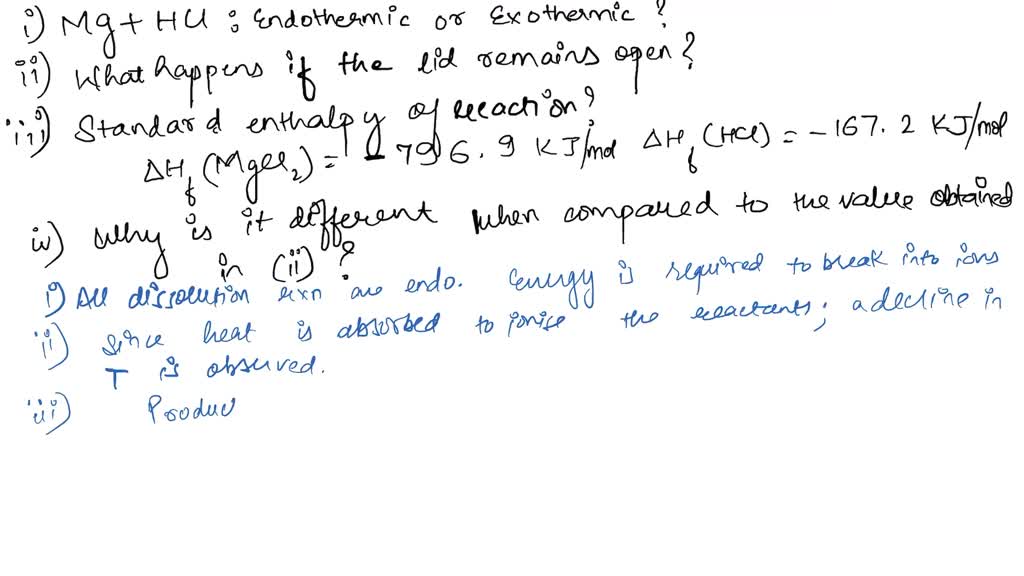 i) Mg + HCl : Endothermic or Exothermic ?
ii) What happens if the lid remains open?
iii) Standard enthalpy of reaction?
ΔHf (MgCl2) = - 796.9 KJ/mol ΔHf (HCl) = - 167.2 KJ/mol
iv) Why is it different when compared to the value obtained
in (ii) ?
i) All dissolution rxn are endo. Energy is required to break into ions
ii) Since heat is absorbed to ionise the reactants; a decline in
T is observed.
iii) Produc